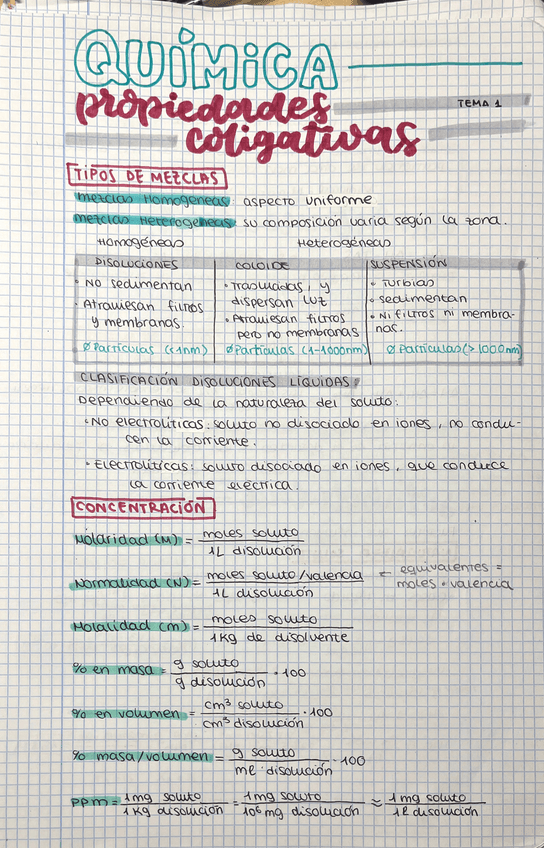 QUÍMICA
propiedades
TEMA 1
coligativas
TIPOS DE MEZCLAS
mezclas Homogéneas: aspecto uniforme
mezclas Heterogéneas: su composición varía según la zona.
Homogéneas Heterogéneas
DISOLUCIONES
· No sedimentan
· Atraviesan filtros
y membranas.
Ø Partículas (<1nm)
COLOIDE
· Traslúcidas, y
dispersan luz
· Atraviesan filtros
pero no membranas
Ø Partículas (1-1000nm)
SUSPENSIÓN
· Turbias
· sedimentan
· Ni filtros ni membra-
nas.
Ø Partículas (>1000nm)
CLASIFICACIÓN DISOLUCIONES LÍQUIDAS
Dependiendo de la naturaleza del soluto:
· No electrolíticas: soluto no disociado en iones, no condu-
cen la corriente.
· Electrolíticas: soluto disociado en iones, que conduce
la corriente eléctrica.
CONCENTRACIÓN
Molaridad (M) = moles soluto / 1L disolución
Normalidad (N) = moles soluto/valencia / 1L disolución ← equivalentes =
moles · valencia
Molalidad (m) = moles soluto / 1Kg de disolvente
% en masa = g soluto / g disolución · 100
% en volumen = cm³ soluto / cm³ disolución · 100
% masa/volumen = g soluto / ml disolución · 100
PPm = 1mg soluto / 1Kg disolución = 1mg soluto / 10⁶ mg disolución ≈ 1mg soluto / 1l disolución